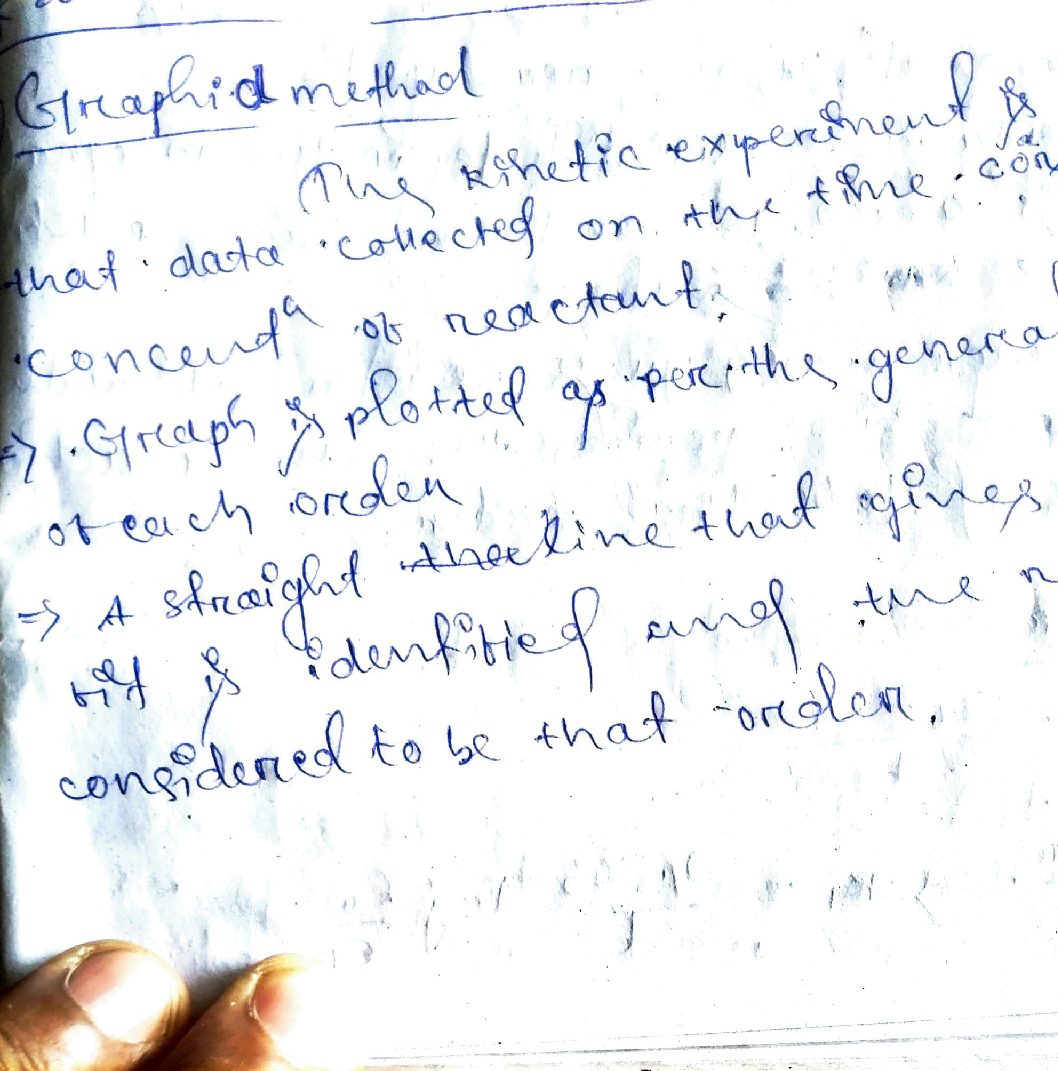 Graphid method
The kinetic experiment is
that data collected on the time con
concentn of reactant.
=> Graph is plotted as per the genera
of each order
=> A straight line that gives
fit is identified and the r
considered to be that order.